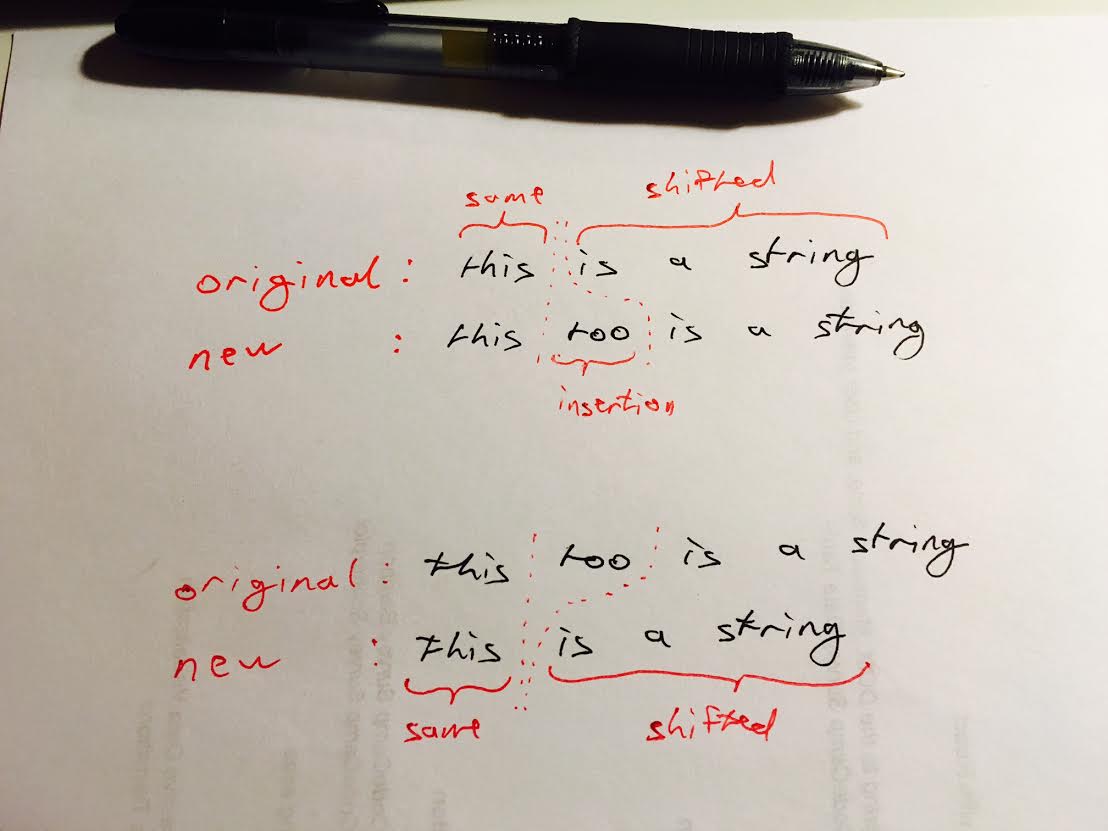 same shifted
original : this is a string
new : this too is a string
insertion
original : this too is a string
new : this is a string
same shifted